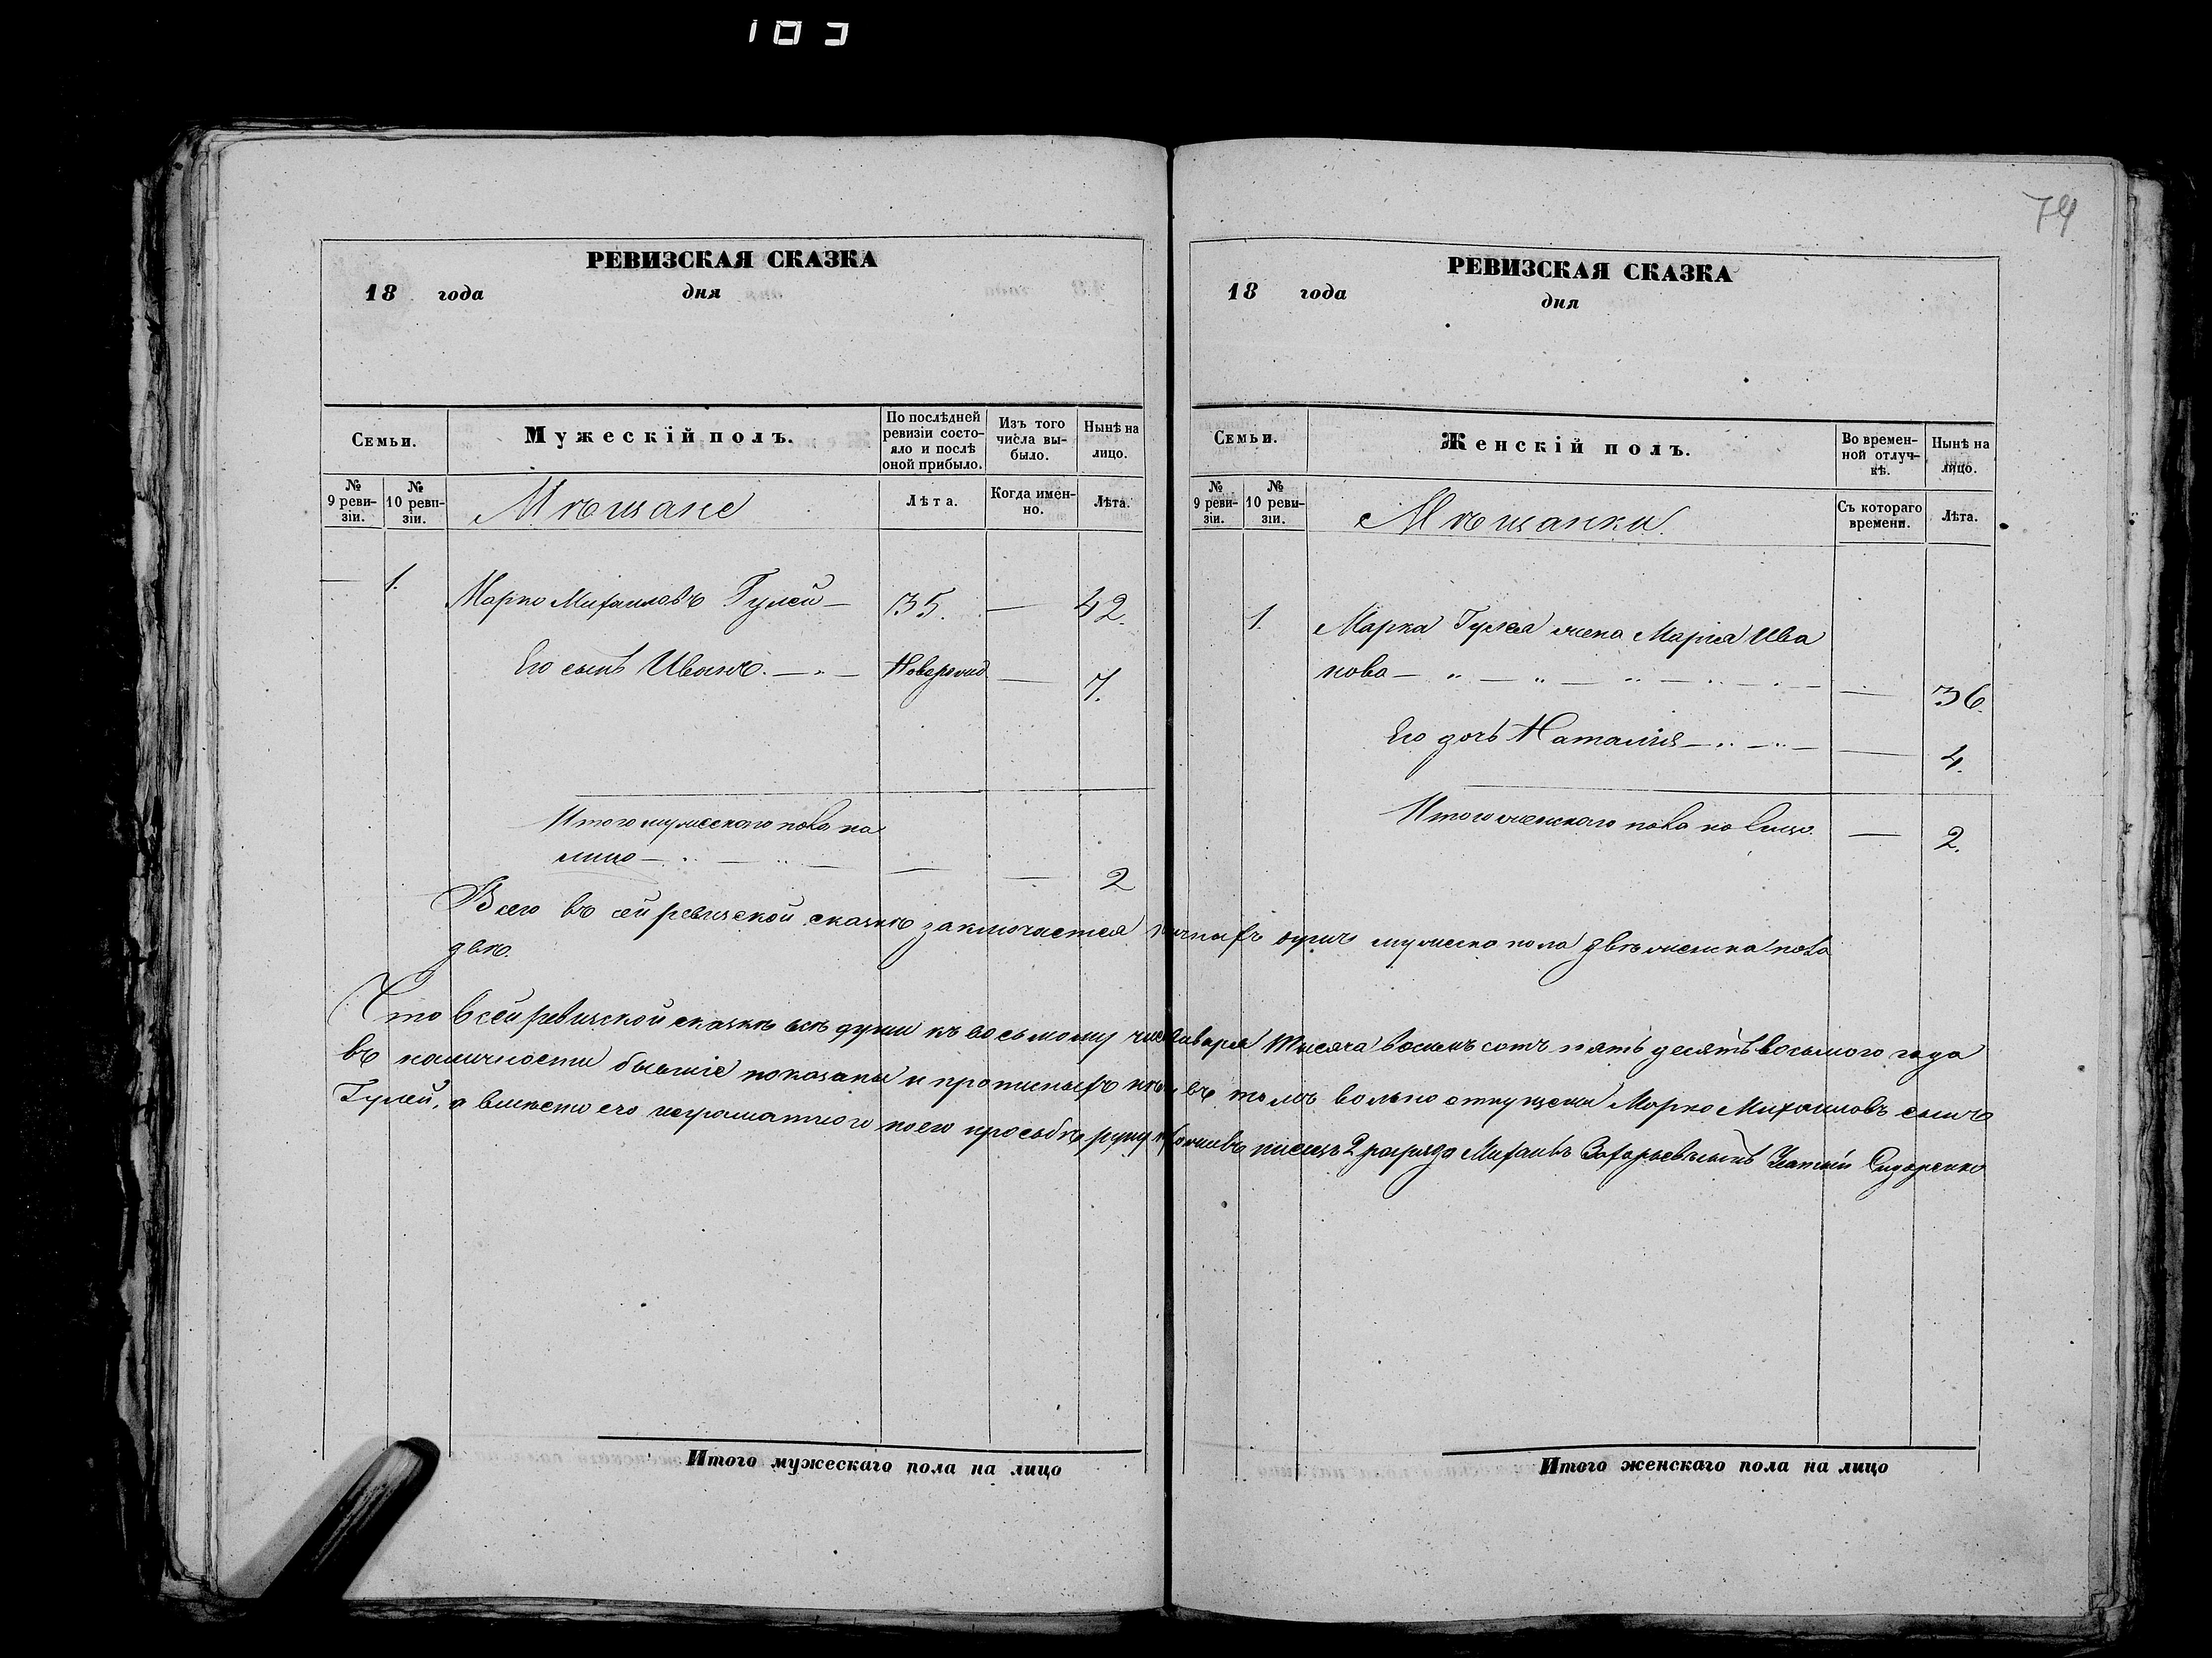 103
74
РЕВИЗСКАЯ СКАЗКА
18 года дня
Семьи.
Мужескій полъ.
По послѣдней ревизіи состояло и послѣ оной прибыло.
Изъ того числа выбыло.
Нынѣ на лицо.
№ 9 ревизіи.
№ 10 ревизіи.
Мѣщане
Лѣта.
Когда именно.
Лѣта.
— 1. Марко Михаиловъ Гулей — 35. — 42.
Его сынъ Иванъ. — „ — Новорожд. — 7.
Итого мужескаго пола на
лицо — „ — „ — — — 2
РЕВИЗСКАЯ СКАЗКА
18 года дня
Семьи.
Женскій полъ.
Во временной отлучкѣ.
Нынѣ на лицо.
№ 9 ревизіи.
№ 10 ревизіи.
Мѣщанки.
Съ котораго времени.
Лѣта.
1. Марка Гулея жена Марія Ива
нова — „ — „ — „ — „ — „ — — 36.
Его дочь Наталія — „ — „ — — 4.
Итого женскаго пола на лицо. — 2.
Всего въ сей ревизской сказкѣ заключается душъ мужеска пола двѣ женска пола
двѣ.
Что в сей ревизской сказкѣ всѣ души къ восьмому января тысяча восемь сотъ пять десятъ восьмого года
въ наличности бывшіе показаны и прописныхъ нѣтъ въ томъ вольно отпущены Марко Михаиловъ сынъ
Гулей, а вместо его неграматного по его просьбѣ руку приложивъ писецъ 2 разряда Михаилъ Захарьевъ сынъ Сидоренко
Итого мужескаго пола на лицо
Итого женскаго пола на лицо